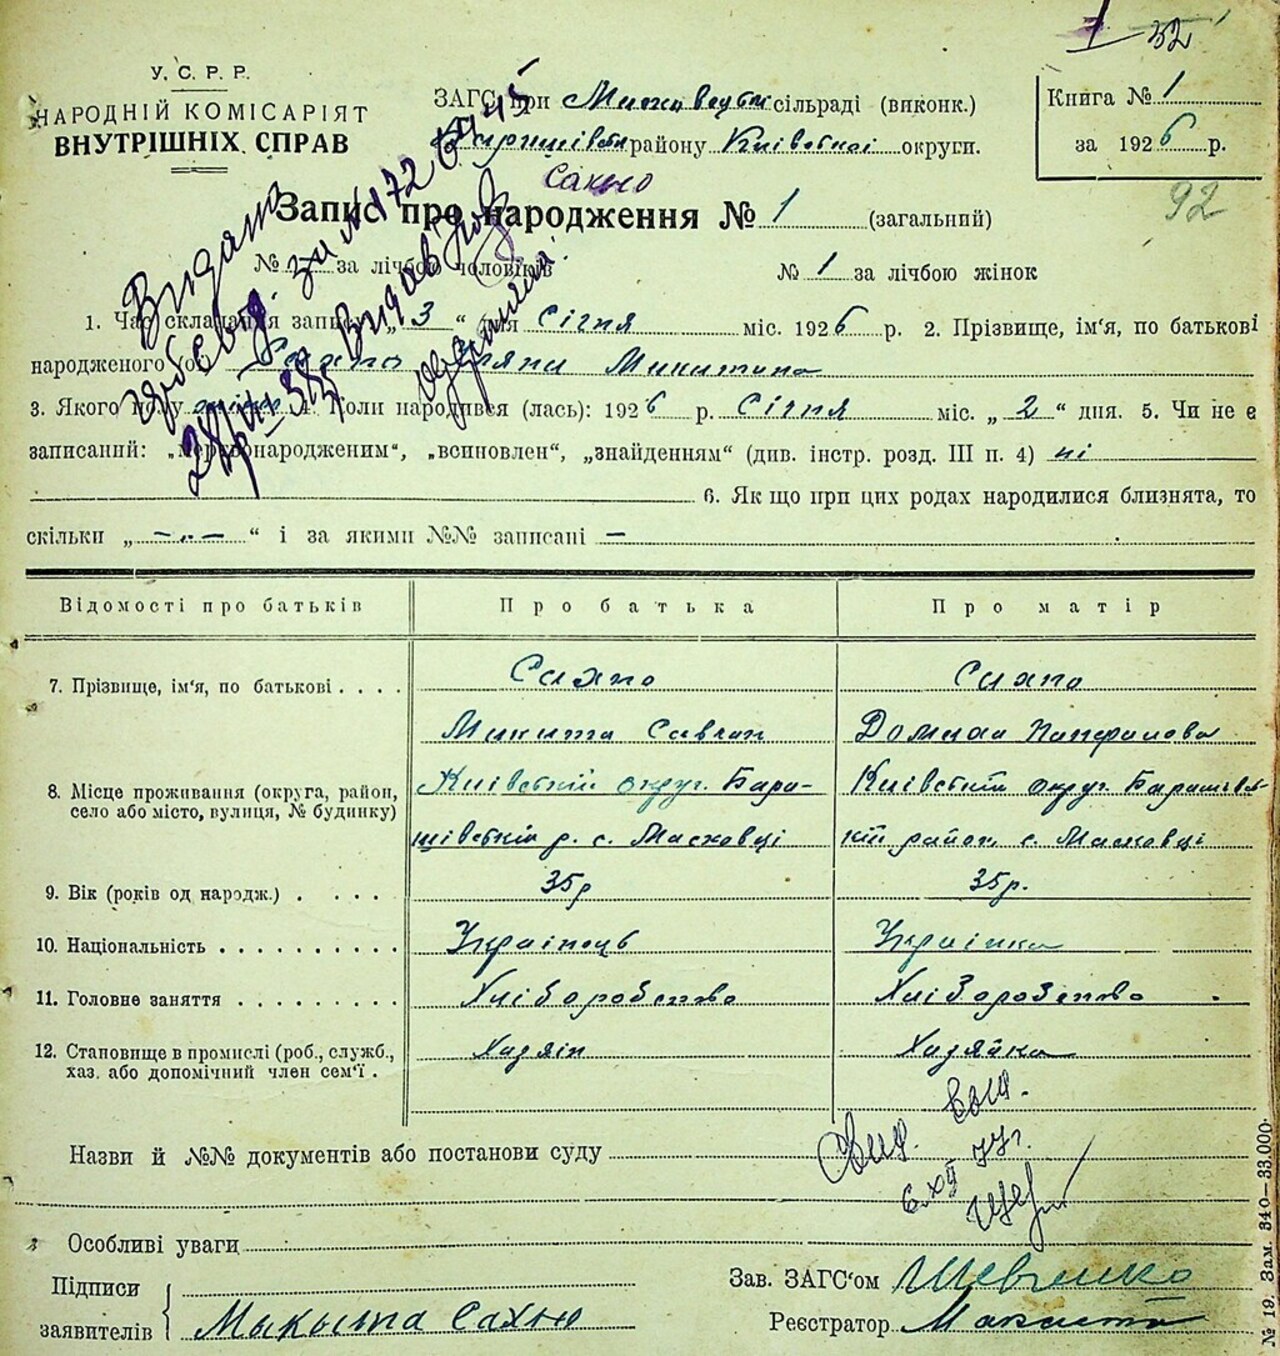 1 32
У. С. Р. Р.
НАРОДНІЙ КОМІСАРІЯТ
ВНУТРІШНІХ СПРАВ
ЗАГС при сільраді (виконк.)
району Київської округи.
Книга № 1
за 1926 р.
92
Сахно
Запис про народження № 1 (загальний)
№ за лічбою чоловіків № 1 за лічбою жінок
1. Час складання запису „ 3 “ дня Січня міс. 1926 р. 2. Прізвище, ім'я, по батькові
народженого Уляни Микитина
3. Якого полу 4. Коли народився (лась): 1926 р. Січня міс. „ 2 “ дня. 5. Чи не є
записаний: „мертвонародженим“, „всиновлен“, „знайденням“ (див. інстр. розд. III п. 4) ні
6. Як що при цих родах народилися близнята, то
скільки „ — “ і за якими №№ записані —
Видано
Відомості про батьків Про батька Про матір
7. Прізвище, ім'я, по батькові . . . . Сахно Сахно
Микита Савич Панфилова
8. Місце проживання (округа, район, село або місто, вулиця, № будинку) Київській округ. Бари- Київській округ. Баришівсь-
шівській р. с. Масковці кій район, с. Масковці
9. Вік (років од народж.) . . . . 35р 35р.
10. Національність . . . . . . . . . . Українець Українка
11. Головне заняття . . . . . . . . . Хліборобство Хліборобство
12. Становище в промислі (роб., служб., хаз. або допомічний член сем'ї . Хазяїн Хазяйка
Назви й №№ документів або постанови суду
6.XII 77г.
Особливі уваги
Підписи
заявителів Микыта Сахно
Зав. ЗАГС'ом Шевченко
Реєстратор
№ 19. Зам. 340—33.000.